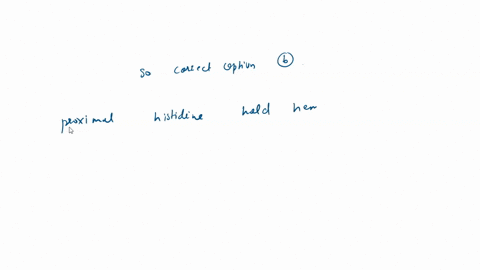 so correct option b
proximal histidine hold hem